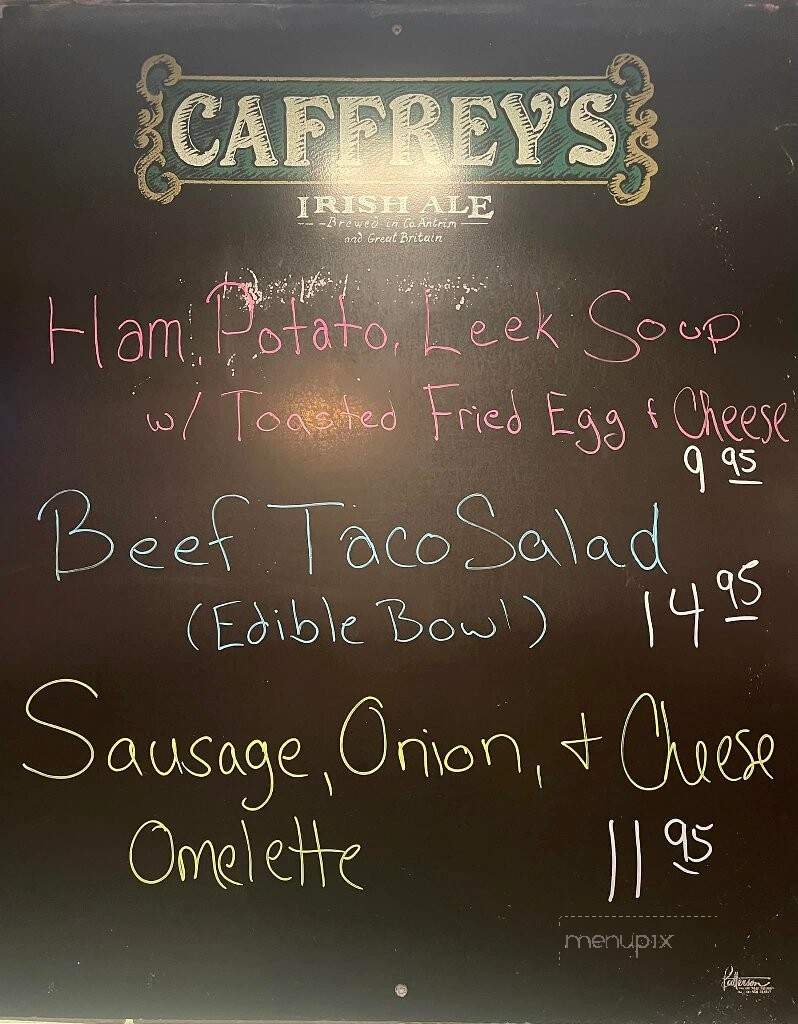 CAFFREY'S
IRISH ALE
Brewed in Co Antrim
and Great Britain
Ham, Potato, Leek Soup
w/ Toasted Fried Egg & Cheese
9 95
Beef Taco Salad
(Edible Bowl)
14 95
Sausage, Onion, + Cheese
Omelette
11 95
menupix
Patterson